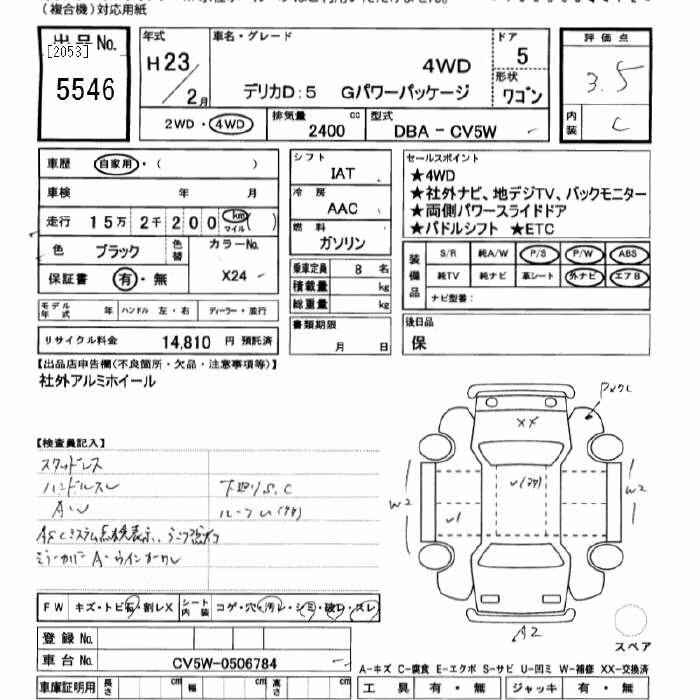 (複合機)対応用紙
出品No.
[2053]
5546
年式
H23
2月
車名・グレード
4WD
デリカD:5 Gパワーパッケージ
ドア
5
形状
ワゴン
評価点
3.5
内装
C
2WD・4WD
排気量
2400
cc
型式
DBA - CV5W
車歴 自家用・( )
車検 年 月
走行 15万2千200 km マイル ( )
色 ブラック
色替
カラーNo.
X24
保証書 有・無
モデル年式 年 ハンドル 左・右 ディーラー・並行
リサイクル料金 14,810 円 預託済
シフト
IAT
冷房
AAC
燃料
ガソリン
乗車定員 8 名
積載量 kg
総重量 kg
書類期限
月 日
セールスポイント
★4WD
★社外ナビ、地デジTV、バックモニター
★両側パワースライドドア
★パドルシフト ★ETC
装備品
S/R 純A/W P/S P/W ABS
純TV 純ナビ 革シート 外ナビ エアB
ナビ型番:
後日品
保
【出品店申告欄(不良箇所・欠品・注意事項等)】
社外アルミホイール
【検査員記入】
スタッドレス
ハンドルスレ
下廻りS.C
AW
F W キズ・トビ石・割レX
シート内装 コゲ・穴・汚レ・シミ・破レ・スレ
登録No.
車台No. CV5W-0506784
車庫証明用 長さ cm 幅 cm 高さ cm
XX
W2
W1
W2
A2
スペア
A-キズ C-腐食 E-エクボ S-サビ U-凹ミ W-補修 XX-交換済
工具 有・無 ジャッキ 有・無